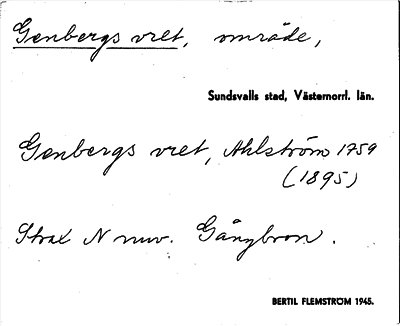 Genbergs vret, område,
Sundsvalls stad, Västernorrl. län.
Genbergs vret, Ahlström 1759
(1895)
Strax N nuv. Gångbron.
BERTIL FLEMSTRÖM 1945.